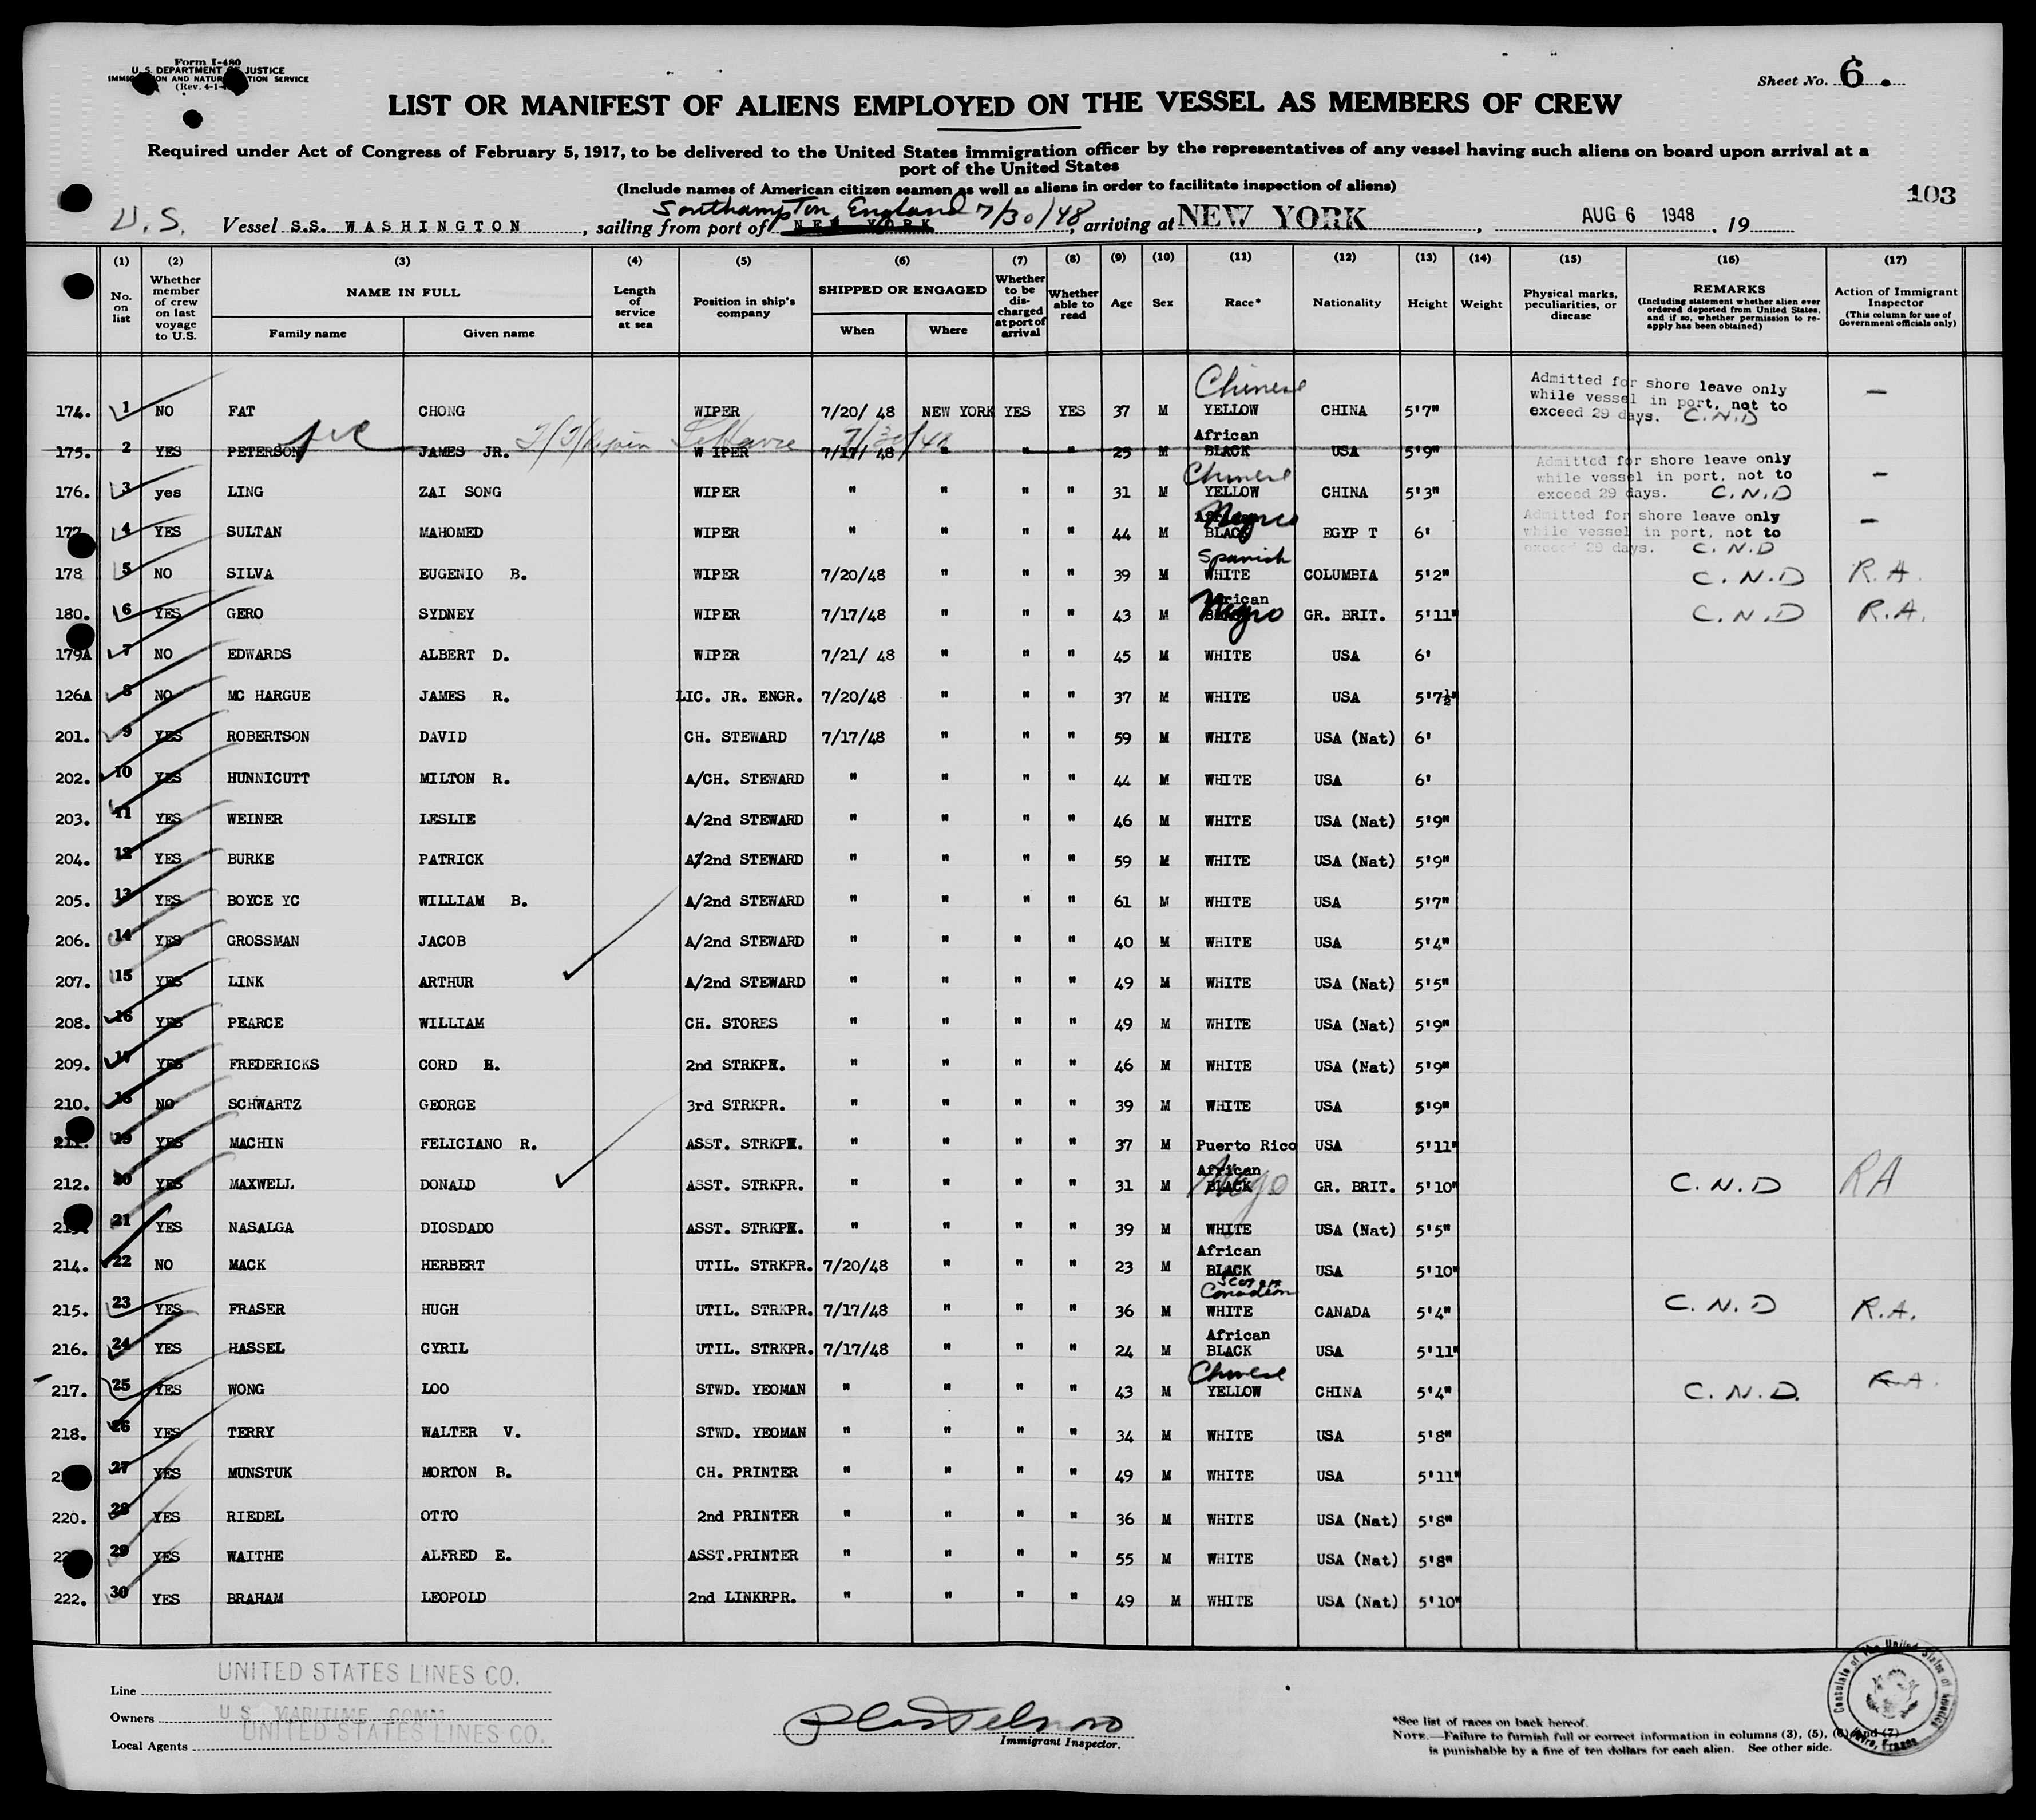 Form I-480
U. S. DEPARTMENT OF JUSTICE
IMMIGRATION AND NATURALIZATION SERVICE
(Rev. 4-1-4
Sheet No. 6.
LIST OR MANIFEST OF ALIENS EMPLOYED ON THE VESSEL AS MEMBERS OF CREW
Required under Act of Congress of February 5, 1917, to be delivered to the United States immigration officer by the representatives of any vessel having such aliens on board upon arrival at a
port of the United States
(Include names of American citizen seamen as well as aliens in order to facilitate inspection of aliens)
103
U.S. Vessel S.S. WASHINGTON, sailing from port of NEW YORK Southampton, England 7/30/48, arriving at NEW YORK, AUG 6 1948, 19
(1) (2) (3) (4) (5) (6) (7) (8) (9) (10) (11) (12) (13) (14) (15) (16) (17)
No. on list
Whether member of crew on last voyage to U.S.
NAME IN FULL
Family name Given name
Length of service at sea
Position in ship's company
SHIPPED OR ENGAGED
When Where
Whether to be discharged at port of arrival
Whether able to read
Age Sex Race* Nationality Height Weight
Physical marks, peculiarities, or disease
REMARKS
(Including statement whether alien ever ordered deported from United States, and if so, whether permission to reapply has been obtained)
Action of Immigrant Inspector
(This column for use of Government officials only)
174. 1 NO FAT CHONG WIPER 7/20/ 48 NEW YORK YES YES 37 M Chinese YELLOW CHINA 5'7" Admitted for shore leave only while vessel in port, not to exceed 29 days. C.N.D —
175. 2 YES PETERSON JAMES JR. Le Havre 7/30/48 W IPER 7/17/ 48 " " " 25 M African BLACK USA 5'9"
176. 3 yes LING ZAI SONG WIPER " " " " 31 M Chinese YELLOW CHINA 5'3" Admitted for shore leave only while vessel in port, not to exceed 29 days. C.N.D —
177. 4 YES SULTAN MAHOMED WIPER " " " " 44 M African Negro BLACK EGYP T 6' Admitted for shore leave only while vessel in port, not to exceed 29 days. C.N.D —
178 5 NO SILVA EUGENIO B. WIPER 7/20/48 " " " 39 M Spanish WHITE COLUMBIA 5'2" C.N.D R.A.
180. 6 YES GERO SYDNEY WIPER 7/17/48 " " " 43 M African Negro BLACK GR. BRIT. 5'11" C.N.D R.A.
179A 7 NO EDWARDS ALBERT D. WIPER 7/21/ 48 " " " 45 M WHITE USA 6'
126A 8 NO MC HARGUE JAMES R. LIC. JR. ENGR. 7/20/48 " " " 37 M WHITE USA 5'7½"
201. 9 YES ROBERTSON DAVID CH. STEWARD 7/17/48 " " " 59 M WHITE USA (Nat) 6'
202. 10 YES HUNNICUTT MILTON R. A/CH. STEWARD " " " " 44 M WHITE USA 6'
203. 11 YES WEINER LESLIE A/2nd STEWARD " " " " 46 M WHITE USA (Nat) 5'9"
204. 12 YES BURKE PATRICK A/2nd STEWARD " " " " 59 M WHITE USA (Nat) 5'9"
205. 13 YES BOYCE YC WILLIAM B. A/2nd STEWARD " " " " 61 M WHITE USA 5'7"
206. 14 YES GROSSMAN JACOB A/2nd STEWARD " " " " 40 M WHITE USA 5'4"
207. 15 YES LINK ARTHUR A/2nd STEWARD " " " " 49 M WHITE USA (Nat) 5'5"
208. 16 YES PEARCE WILLIAM CH. STORES " " " " 49 M WHITE USA (Nat) 5'9"
209. 17 YES FREDERICKS CORD H. 2nd STRKPR. " " " " 46 M WHITE USA (Nat) 5'9"
210. 18 NO SCHWARTZ GEORGE 3rd STRKPR. " " " " 39 M WHITE USA 5'9"
211. 19 YES MACHIN FELICIANO R. ASST. STRKPR. " " " " 37 M Puerto Rico USA 5'11"
212. 20 YES MAXWELL DONALD ASST. STRKPR. " " " " 31 M African Negro BLACK GR. BRIT. 5'10" C.N.D RA
21 YES NASALGA DIOSDADO ASST. STRKPR. " " " " 39 M WHITE USA (Nat) 5'5"
214. 22 NO MACK HERBERT UTIL. STRKPR. 7/20/48 " " " 23 M African BLACK USA 5'10"
215. 23 YES FRASER HUGH UTIL. STRKPR. 7/17/48 " " " 36 M Scotch Canadian WHITE CANADA 5'4" C.N.D R.A.
216. 24 YES HASSEL CYRIL UTIL. STRKPR. 7/17/48 " " " 24 M African BLACK USA 5'11"
217. 25 YES WONG LOO STWD. YEOMAN " " " " 43 M Chinese YELLOW CHINA 5'4" C.N.D. R.A.
218. 26 YES TERRY WALTER V. STWD. YEOMAN " " " " 34 M WHITE USA 5'8"
27 YES MUNSTUK MORTON B. CH. PRINTER " " " " 49 M WHITE USA 5'11"
220. 28 YES RIEDEL OTTO 2nd PRINTER " " " " 36 M WHITE USA (Nat) 5'8"
29 YES WAITHE ALFRED E. ASST.PRINTER " " " " 55 M WHITE USA (Nat) 5'8"
222. 30 YES BRAHAM LEOPOLD 2nd LINKRPR. " " " " 49 M WHITE USA (Nat) 5'10"
Line UNITED STATES LINES CO.
Owners U S MARITIME COMM
Local Agents UNITED STATES LINES CO.
Immigrant Inspector.
*See list of races on back hereof.
NOTE.—Failure to furnish full or correct information in columns (3), (5), (6) and (7)
is punishable by a fine of ten dollars for each alien. See other side.
Consulate of The United States of America
Havre, France